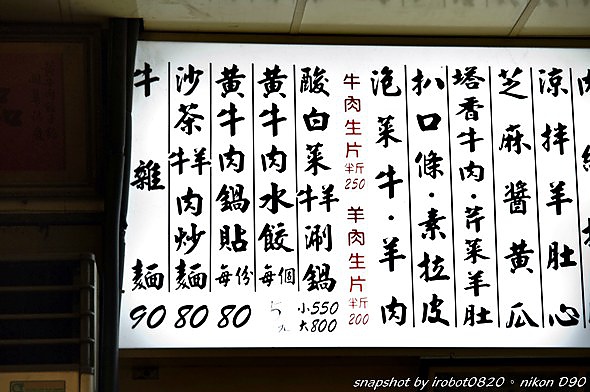 涼拌羊肚心
芝麻醬黃瓜
塔香牛肉·芹菜羊肚
扒口條·素拉皮
泡菜牛·羊肉
牛肉生片半斤250
羊肉生片半斤200
酸白菜牛羊涮鍋
小550
大800
黃牛肉水餃每個
黃牛肉鍋貼每份80
沙茶牛羊肉炒麵80
牛雜麵90
snapshot by irobot0820。nikon D90